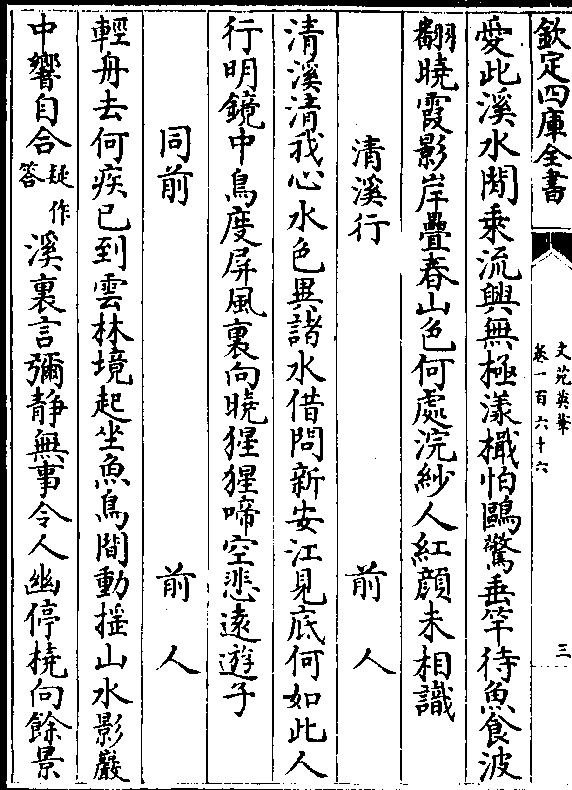 欽定四庫全書
文苑英華
卷一百六十六
三
愛此溪水閒乗流興無極漾檝怕鷗驚垂竿待魚食波
翻曉霞影岸疊春山色何處浣紗人紅顔未相識
清溪行 前人
清溪清我心水色異諸水借問新安江見底何如此人
行明鏡中鳥度屏風裏向曉猩猩啼空悲逺遊子
同前 前人
輕舟去何疾已到雲林境起坐魚鳥間動揺山水影巖
中響自合疑作答溪裏言彌静無事令人幽停橈向餘景